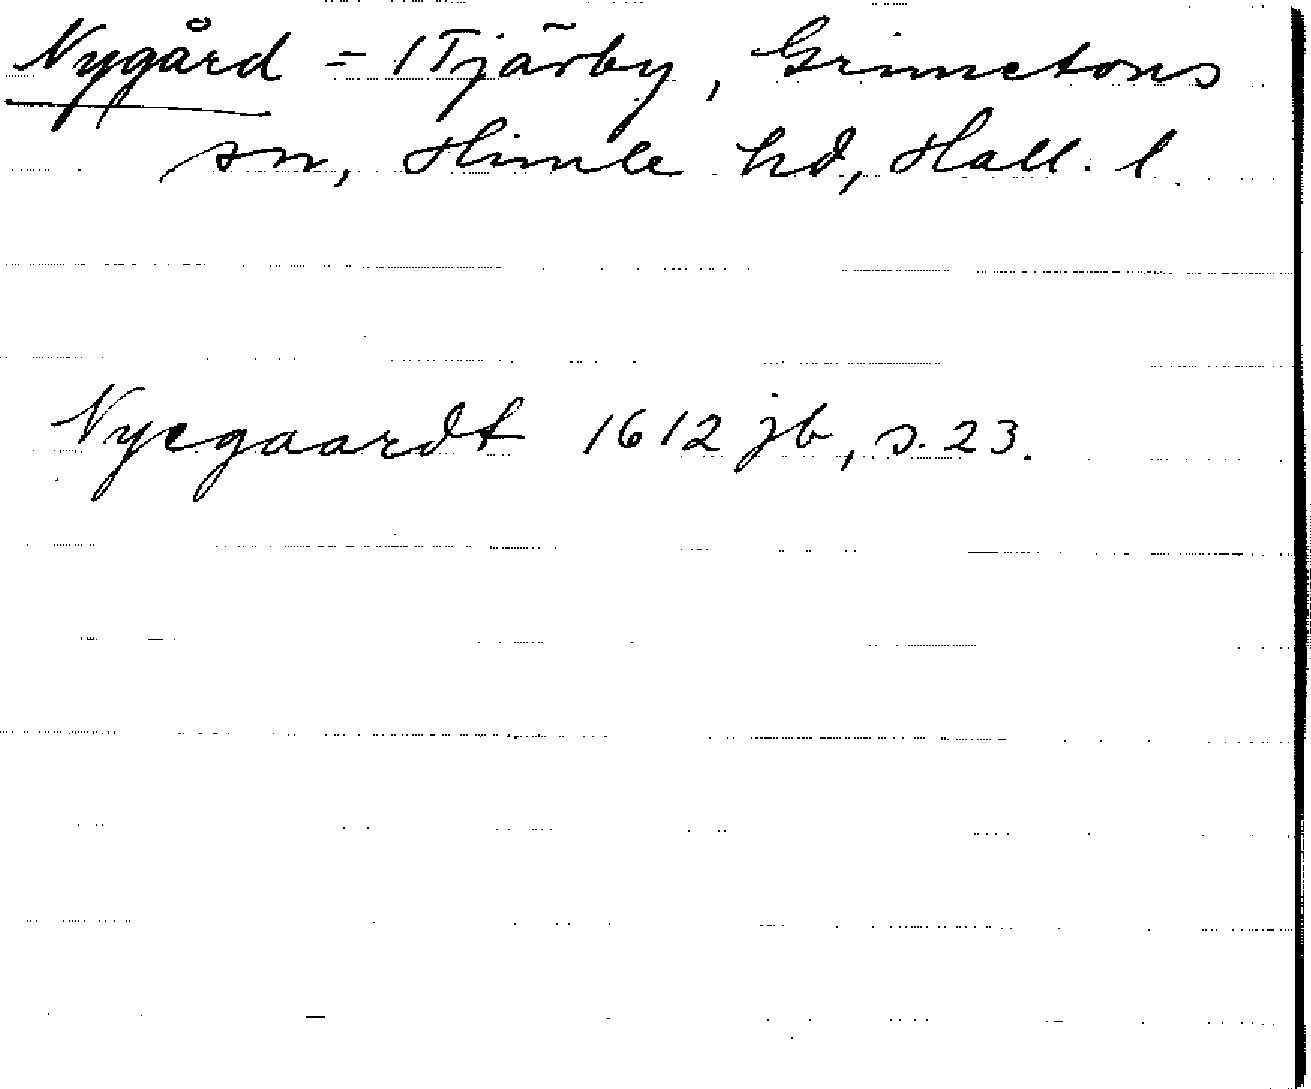 Nygård = 1 Tjärby, Grimetons
sn, Himle hd, Hall. l.
Nyegaardt 1612 jb, s. 23.